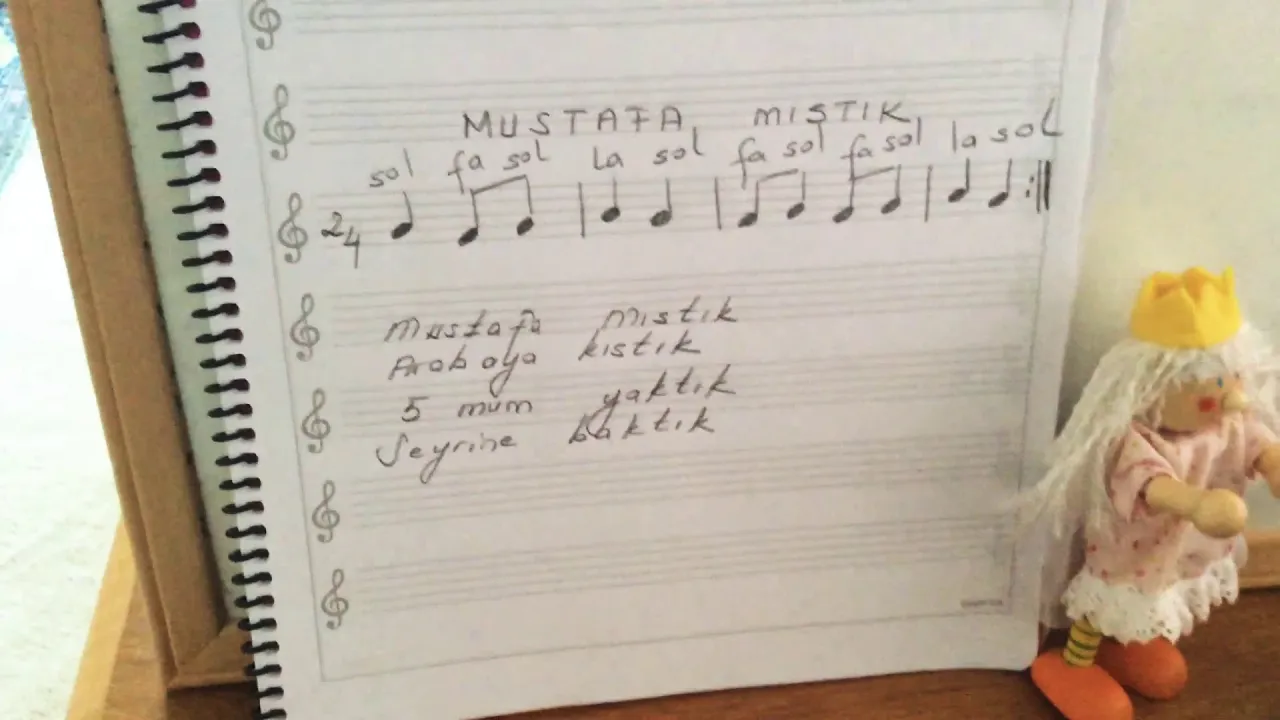 MUSTAFA MISTIK
sol fa sol la sol fa sol fa sol la sol
2/4
Mustafa Mıstık
Arabaya kıstık
5 mum yaktık
Seyrine baktık